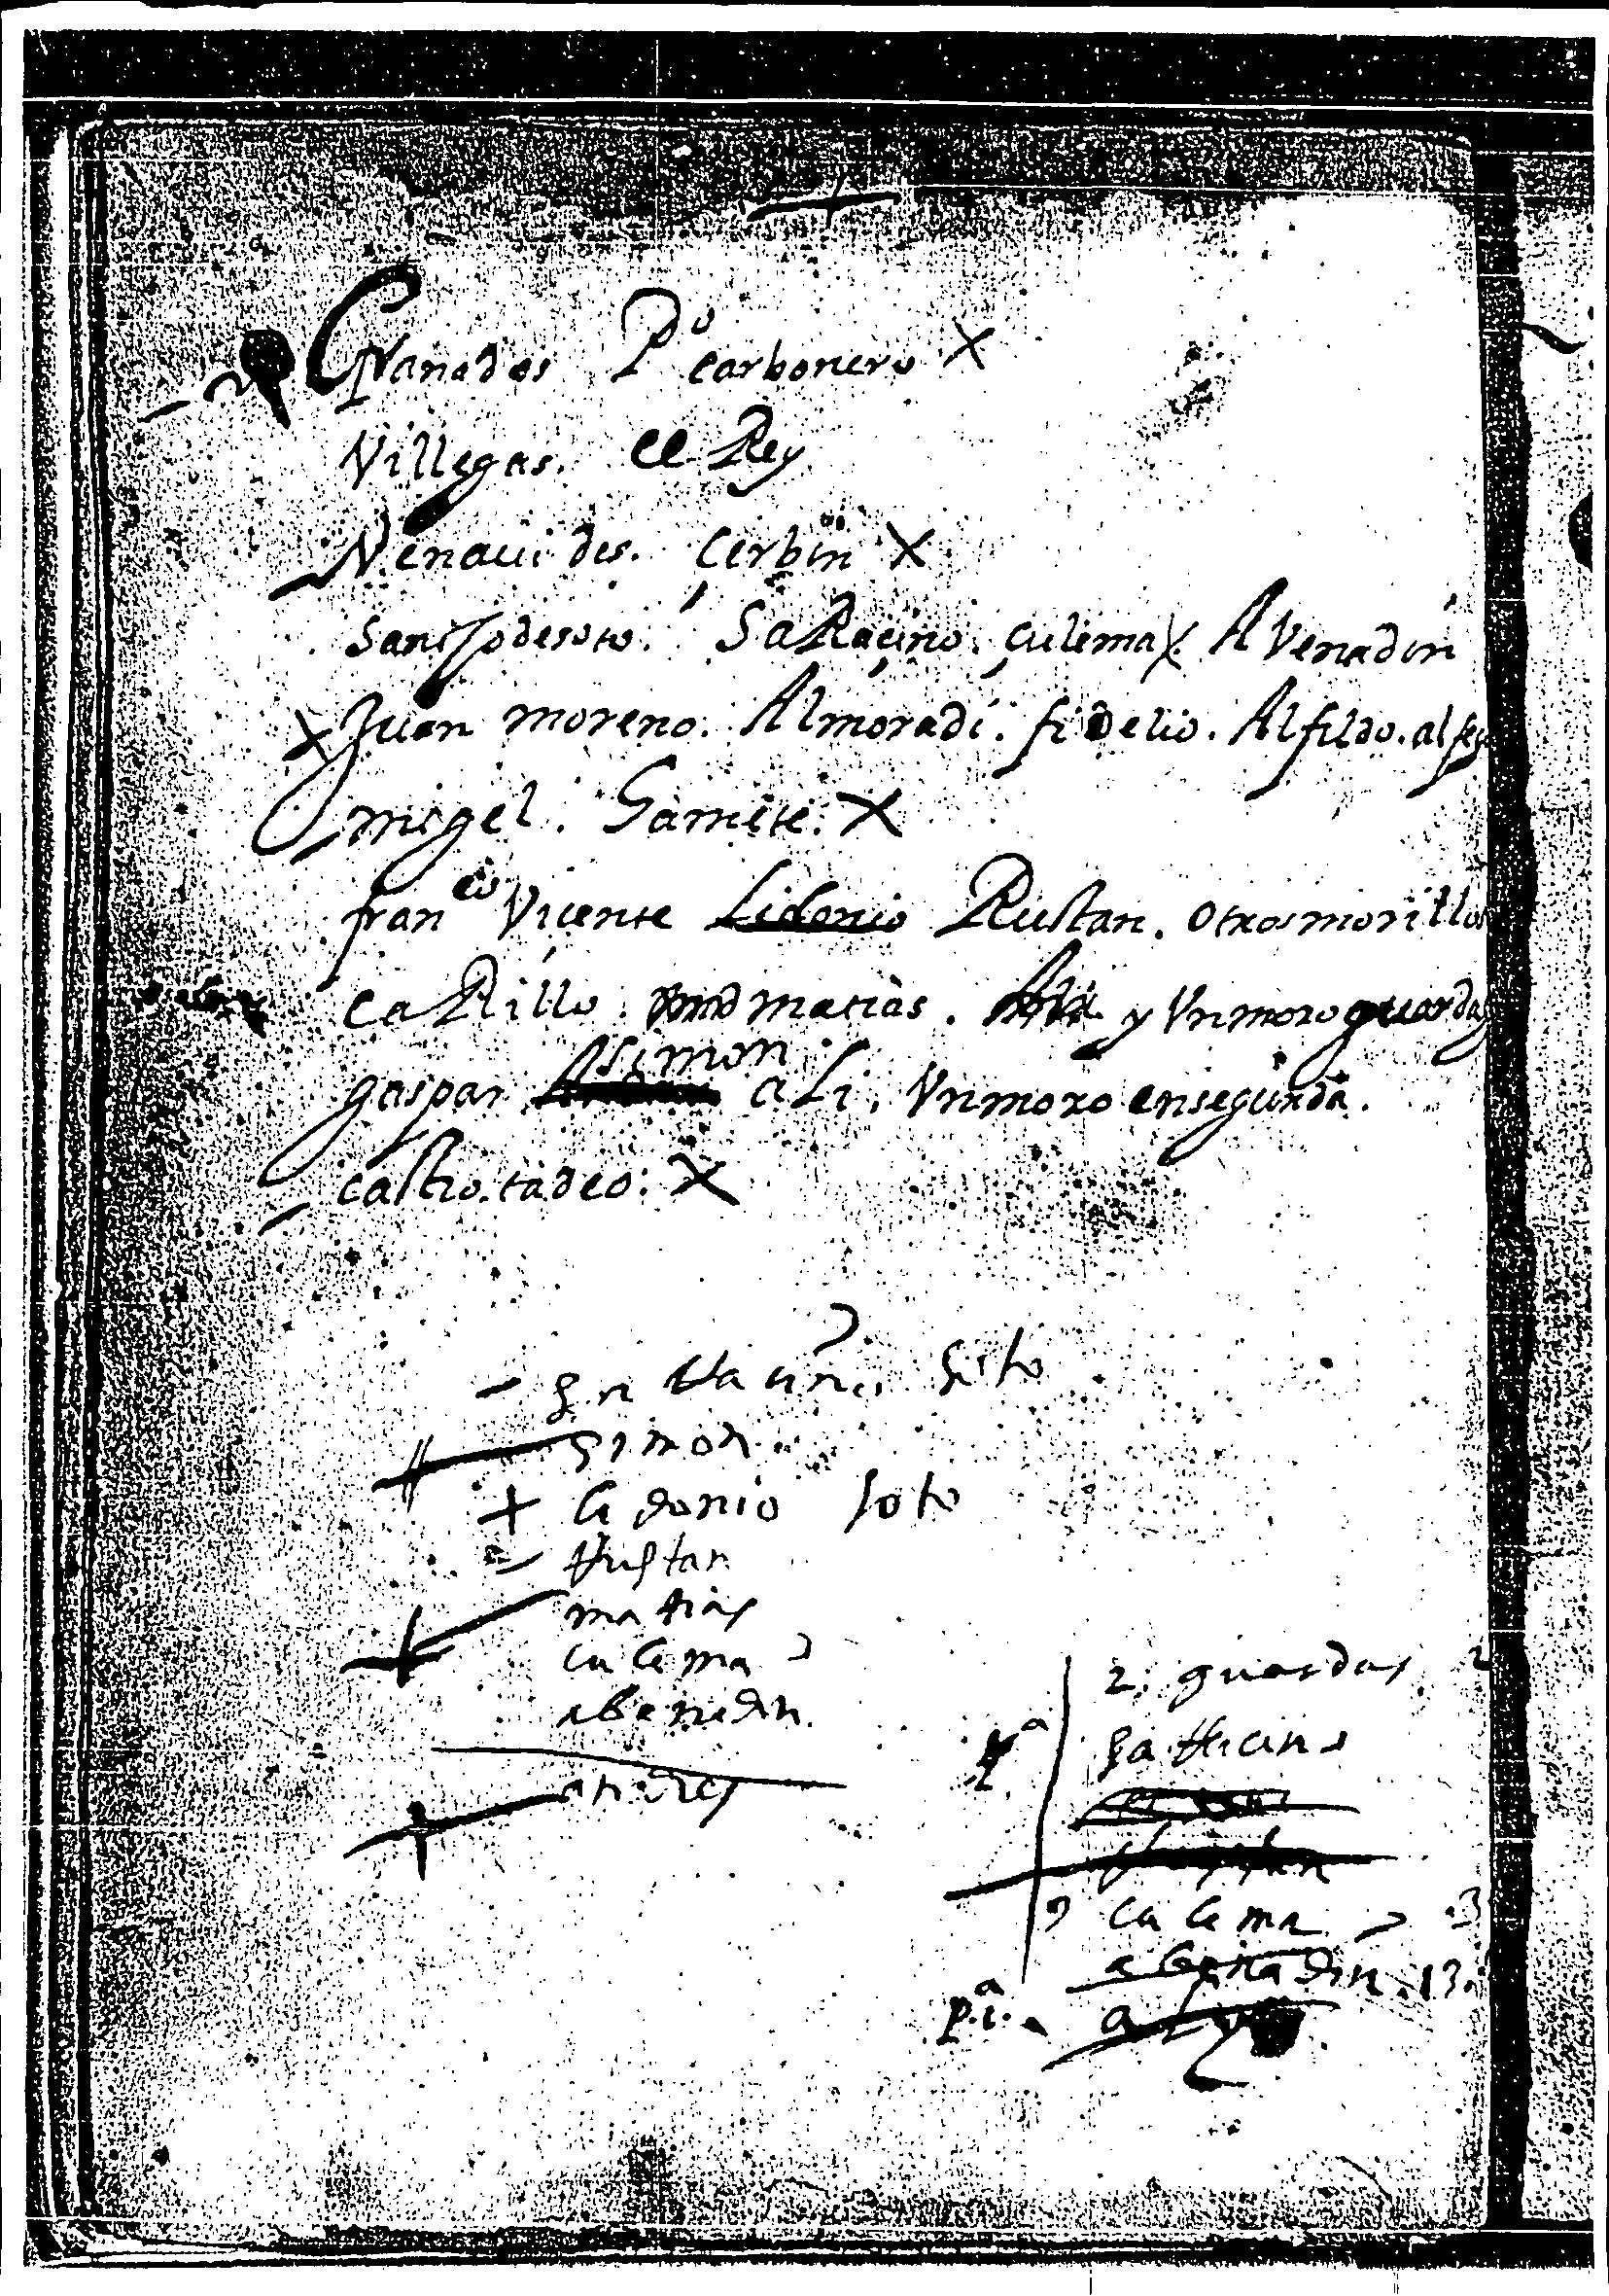 Granados Pdo carbonero X
Villegas. el Rey
Venauides. Cerbin X
Sanisso de soto. SaRaçino. çulema X. AVenadin
X Juan moreno. Almoradi. fidelio. Alfildo. al
migel. Gamite. X
franco Vicente Lidonio Rustan. otros morillos
caRillo. matias. y Vn moro guarda
simon
gaspar ali. Vn moro en segunda.
castro. tadeo. X
simon
+ lidonio soto
Rustan
matias
culema
abenadin
andres
2. guardas 2
saRacino
culema 3
abenadin. 13.